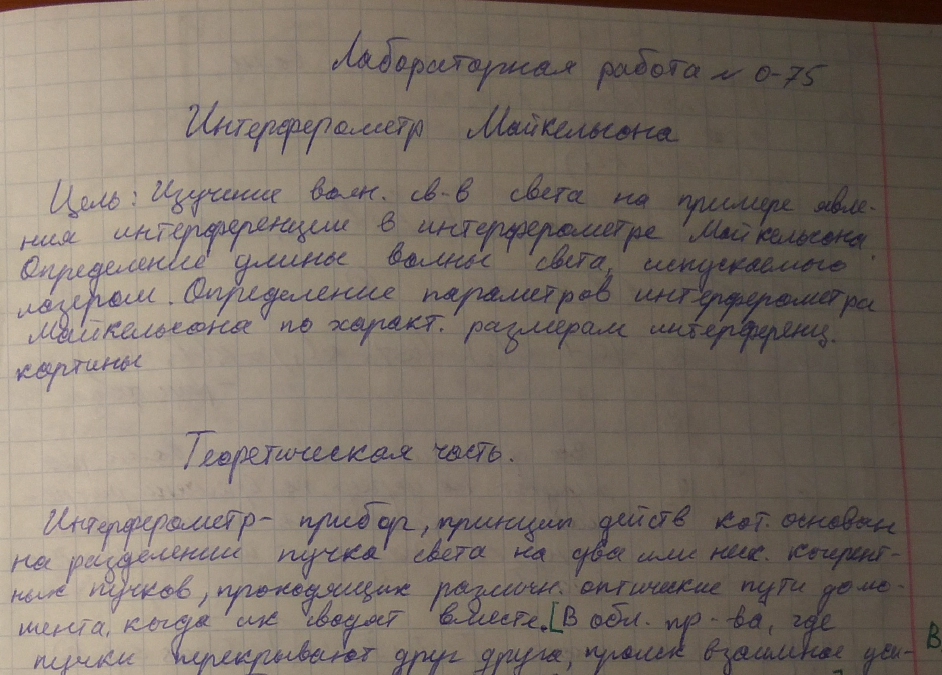 Лабораторная работа № О-75
Интерферометр Майкельсона
Цель: Изучение волн. св-в света на примере явле-
ния интерференции в интерферометре Майкельсона
Определение длины волны света, испускаемого
лазером. Определение параметров интерферометра
Майкельсона по характ. размерам интерференц.
картины
Теоретическая часть.
Интерферометр - прибор, принцип действ кот. основан
на разделении пучка света на два или неск. когерент-
ных пучков, проходящих различн. оптические пути до мо-
мента, когда их сводят вместе. [В обл. пр-ва, где
В
пучки перекрывают друг друга, происх взаимное уси-